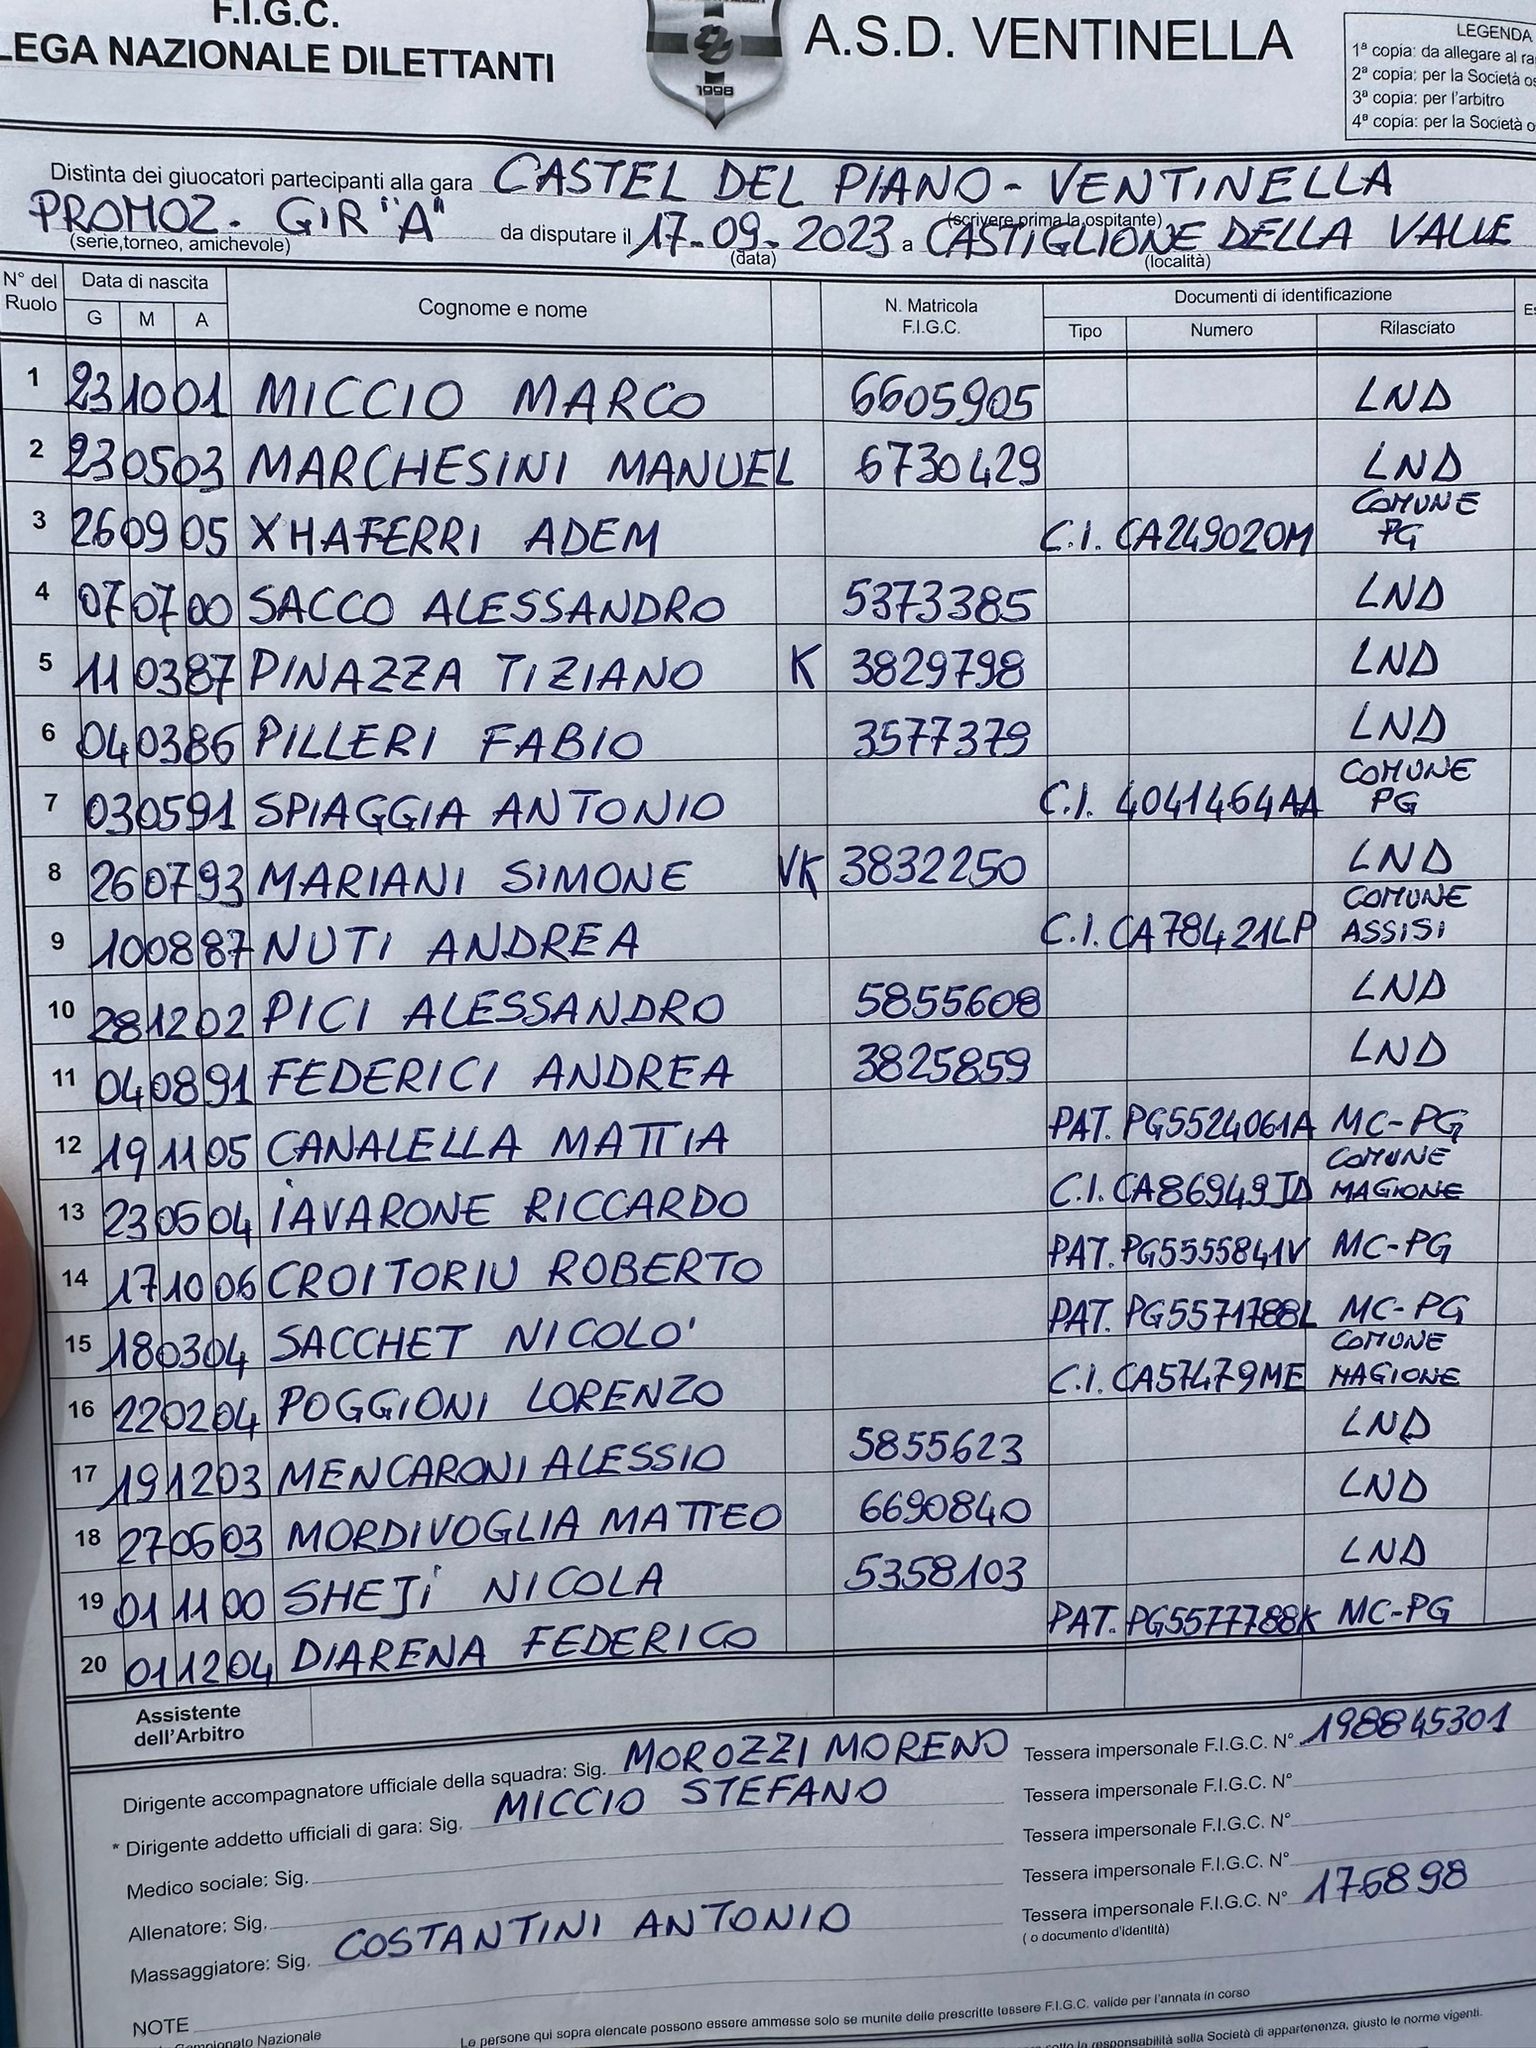 F.I.G.C.
LEGA NAZIONALE DILETTANTI
1998
A.S.D. VENTINELLA
LEGENDA
1ª copia: da allegare al ra
2ª copia: per la Società os
3ª copia: per l'arbitro
4ª copia: per la Società o
Distinta dei giuocatori partecipanti alla gara CASTEL DEL PIANO - VENTINELLA
(scrivere prima la ospitante)
PROMOZ. GIR "A" da disputare il 17-09-2023 a CASTIGLIONE DELLA VALLE
(serie,torneo, amichevole) (data) (località)
N° del Ruolo Data di nascita Cognome e nome N. Matricola F.I.G.C. Documenti di identificazione Es
G M A Tipo Numero Rilasciato
1 23 10 01 MICCIO MARCO 6605905 LND
2 23 05 03 MARCHESINI MANUEL 6730429 LND
3 26 09 05 XHAFERRI ADEM C.I. CA24902OM COMUNE PG
4 07 07 00 SACCO ALESSANDRO 5373385 LND
5 11 03 87 PINAZZA TIZIANO K 3829798 LND
6 04 03 86 PILLERI FABIO 3577379 LND
7 03 05 91 SPIAGGIA ANTONIO C.I. 4041464AA COMUNE PG
8 26 07 93 MARIANI SIMONE VK 3832250 LND
9 10 08 87 NUTI ANDREA C.I. CA78421LP COMUNE ASSISI
10 28 12 02 PICI ALESSANDRO 5855608 LND
11 04 08 91 FEDERICI ANDREA 3825859 LND
12 19 11 05 CANALELLA MATTIA PAT. PG5524061A MC-PG
13 23 06 04 IAVARONE RICCARDO C.I. CA86949JD COMUNE MAGIONE
14 17 10 06 CROITORIU ROBERTO PAT. PG5555841V MC-PG
15 18 03 04 SACCHET NICOLO' PAT. PG5571788L MC-PG
16 22 02 04 POGGIONI LORENZO C.I. CA57479ME COMUNE MAGIONE
17 19 12 03 MENCARONI ALESSIO 5855623 LND
18 27 06 03 MORDIVOGLIA MATTEO 6690840 LND
19 01 11 00 SHEJI NICOLA 5358103 LND
20 01 12 04 DIARENA FEDERICO PAT. PG5577788K MC-PG
Assistente
dell'Arbitro
Dirigente accompagnatore ufficiale della squadra: Sig. MOROZZI MORENO Tessera impersonale F.I.G.C. N° 198845301
* Dirigente addetto ufficiali di gara: Sig. MICCIO STEFANO Tessera impersonale F.I.G.C. N°
Medico sociale: Sig. Tessera impersonale F.I.G.C. N°
Allenatore: Sig. Tessera impersonale F.I.G.C. N°
Massaggiatore: Sig. COSTANTINI ANTONIO Tessera impersonale F.I.G.C. N° 176898
( o documento d'identità)
NOTE
Campionato Nazionale
Le persone qui sopra elencate possono essere ammesse solo se munite delle prescritte tessere F.I.G.C. valide per l'annata in corso
sotto la responsabilità sella Società di appartenenza, giusto le norme vigenti.